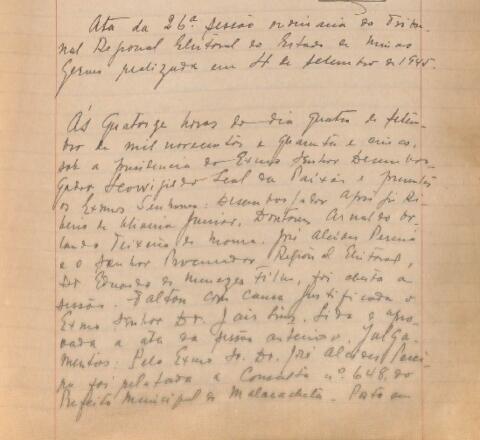 Ata da 26ª sessão ordinaria do Tribu-
nal Regional Eleitoral do Estado de Minas
Geraes realizada em 4 de setembro de 1945.
Ás quatorze horas do dia quatro de setem-
bro de mil novecentos e quarenta e cinco,
sob a presidencia do Exmo Senhor Desembar-
gador Leovigildo Leal da Paixão e presentes
os Exmos Senhores: Desembargador Aprigio Ri-
beiro de Oliveira Junior, Doutores Arnaldo Or-
lando Teixeira de Moura, José Alcides Pereira
e o Senhor Procurador Regional Eleitoral,
Dr Eduardo de Menezes Filho, foi aberta a
sessão. Faltou com causa justificada o
Exmo Senhor Dr. Jair Lins. Lida e apro-
vada a ata da sessão anterior. Julga-
mentos: Pelo Exmo Sr. Dr. José Alcides Perei-
ra foi relatada a Consulta nº 648, do
Prefeito Municipal de Malacacheta. Posto em